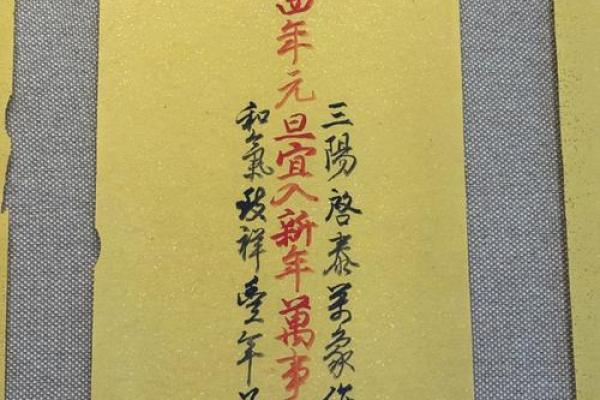 三陽啓泰萬象
年元旦宜入新年萬事
和氣致祥豐年